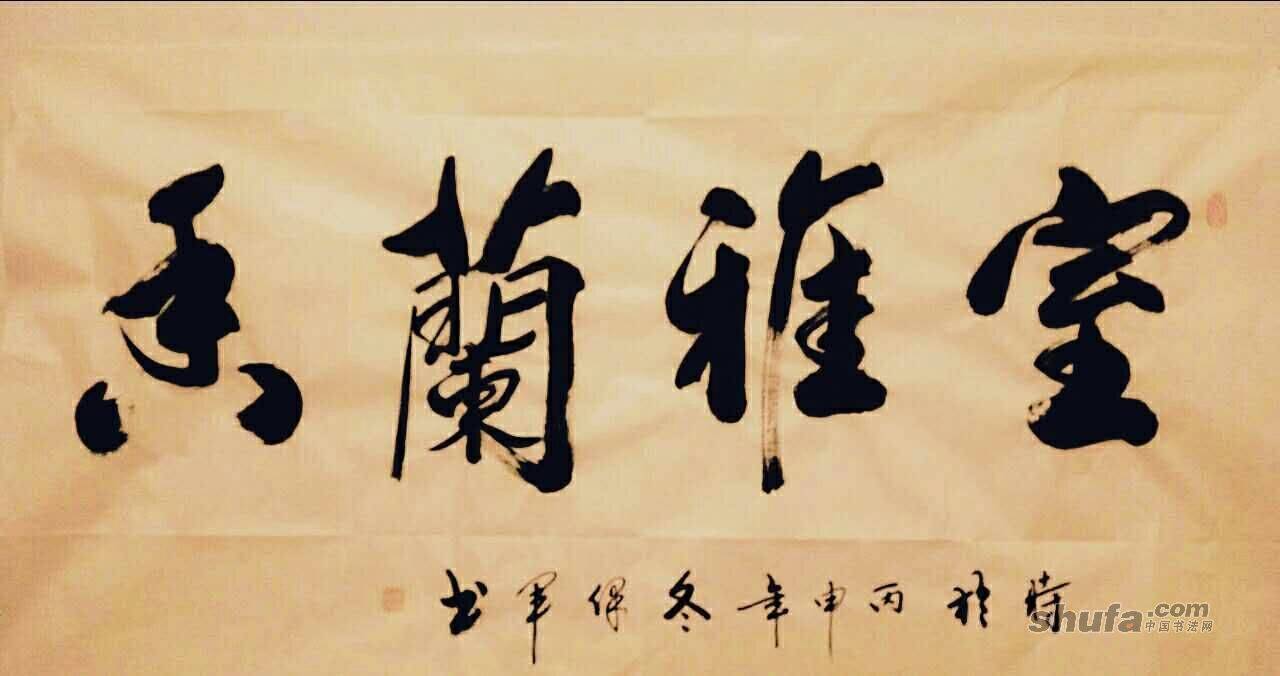 室雅蘭香
時於丙申年冬保軍书
shufa.com
中国书法网